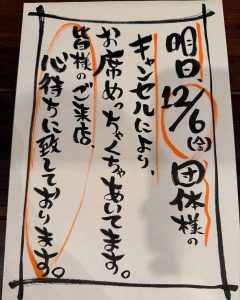 明日12/6(金)団体様の
キャンセルにより、
お席めっちゃくちゃあいてます。
皆様のご来店、
心待ちに致しております。